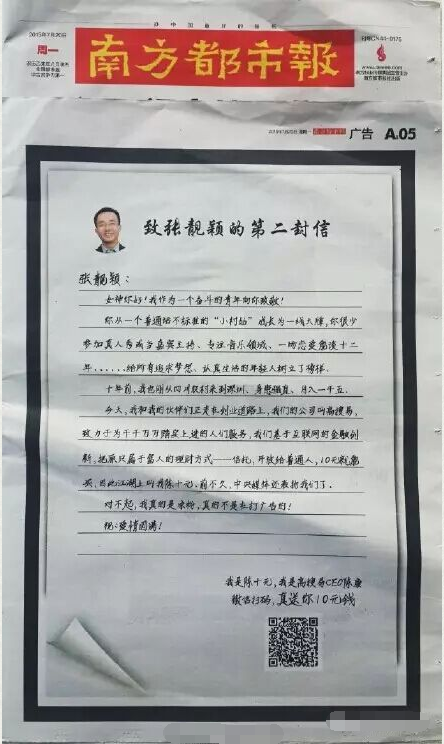 办中国最好的报纸
2015年7月20日
周一
南方都市報
广告 A05
致张靓颖的第二封信
张靓颖：
女神你好！我作为一个奋斗的青年向你致敬！
你从一个普通话不标准的“小村姑”成长为一线大牌，你很少
参加真人秀或当嘉宾主持、专注音乐领域、一场恋爱爱谈十二
年......给所有追求梦想、认真生活的年轻人树立了榜样。
十年前，我也刚从四川农村来到深圳、身患、月入一千五。
今天，我和我的伙伴们正走在创业道路上，我们的公司叫高搜易，
致力于为千千万万踏实上进的人们服务，我们基于互联网的金融创
新，把原只属于富人的理财方式——信托，开放给普通人，10元就能
买，因此江湖上叫我陈十元，前不久，中央媒体还表扬我们了。
对不起，我真的是来粉，真的不是来打广告的！
祝：爱情圆满！
我是陈十元，我是高搜易CEO陈康
微信扫码，真送你10元钱